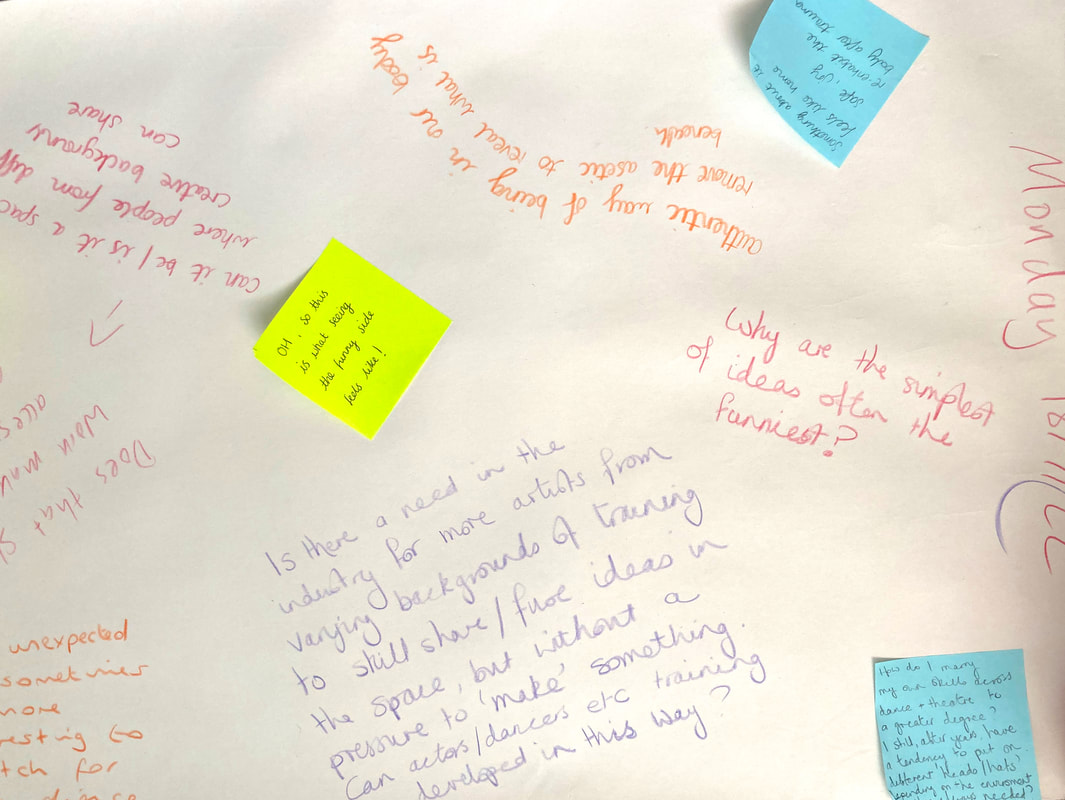 something about it
feels like home
safe, joy
re-inhabit the
body after trauma
authentic way of being in our body
remove the asetic to reveal what is
beneath
can it be / is it a spac
where people from diff
creative background
can share
Does that
work
acces
OH, so this
is what seeing
the funny side
feels like!
Why are the simplest
of ideas often the
funniest?
Monday
Is there a need in the
industry for more artists from
varying backgrounds of training
to skill share / fuse ideas in
the space, but without a
pressure to 'make' something.
Can actors/dancers etc training
developed in this way?
unexpected
sometimes
more
resting to
tch for
How do I marry
my own skills across
dance + theatre to
a greater degree?
I still, after years, have
a tendency to put on
different heads/'hats'
depending on the environment
needed?